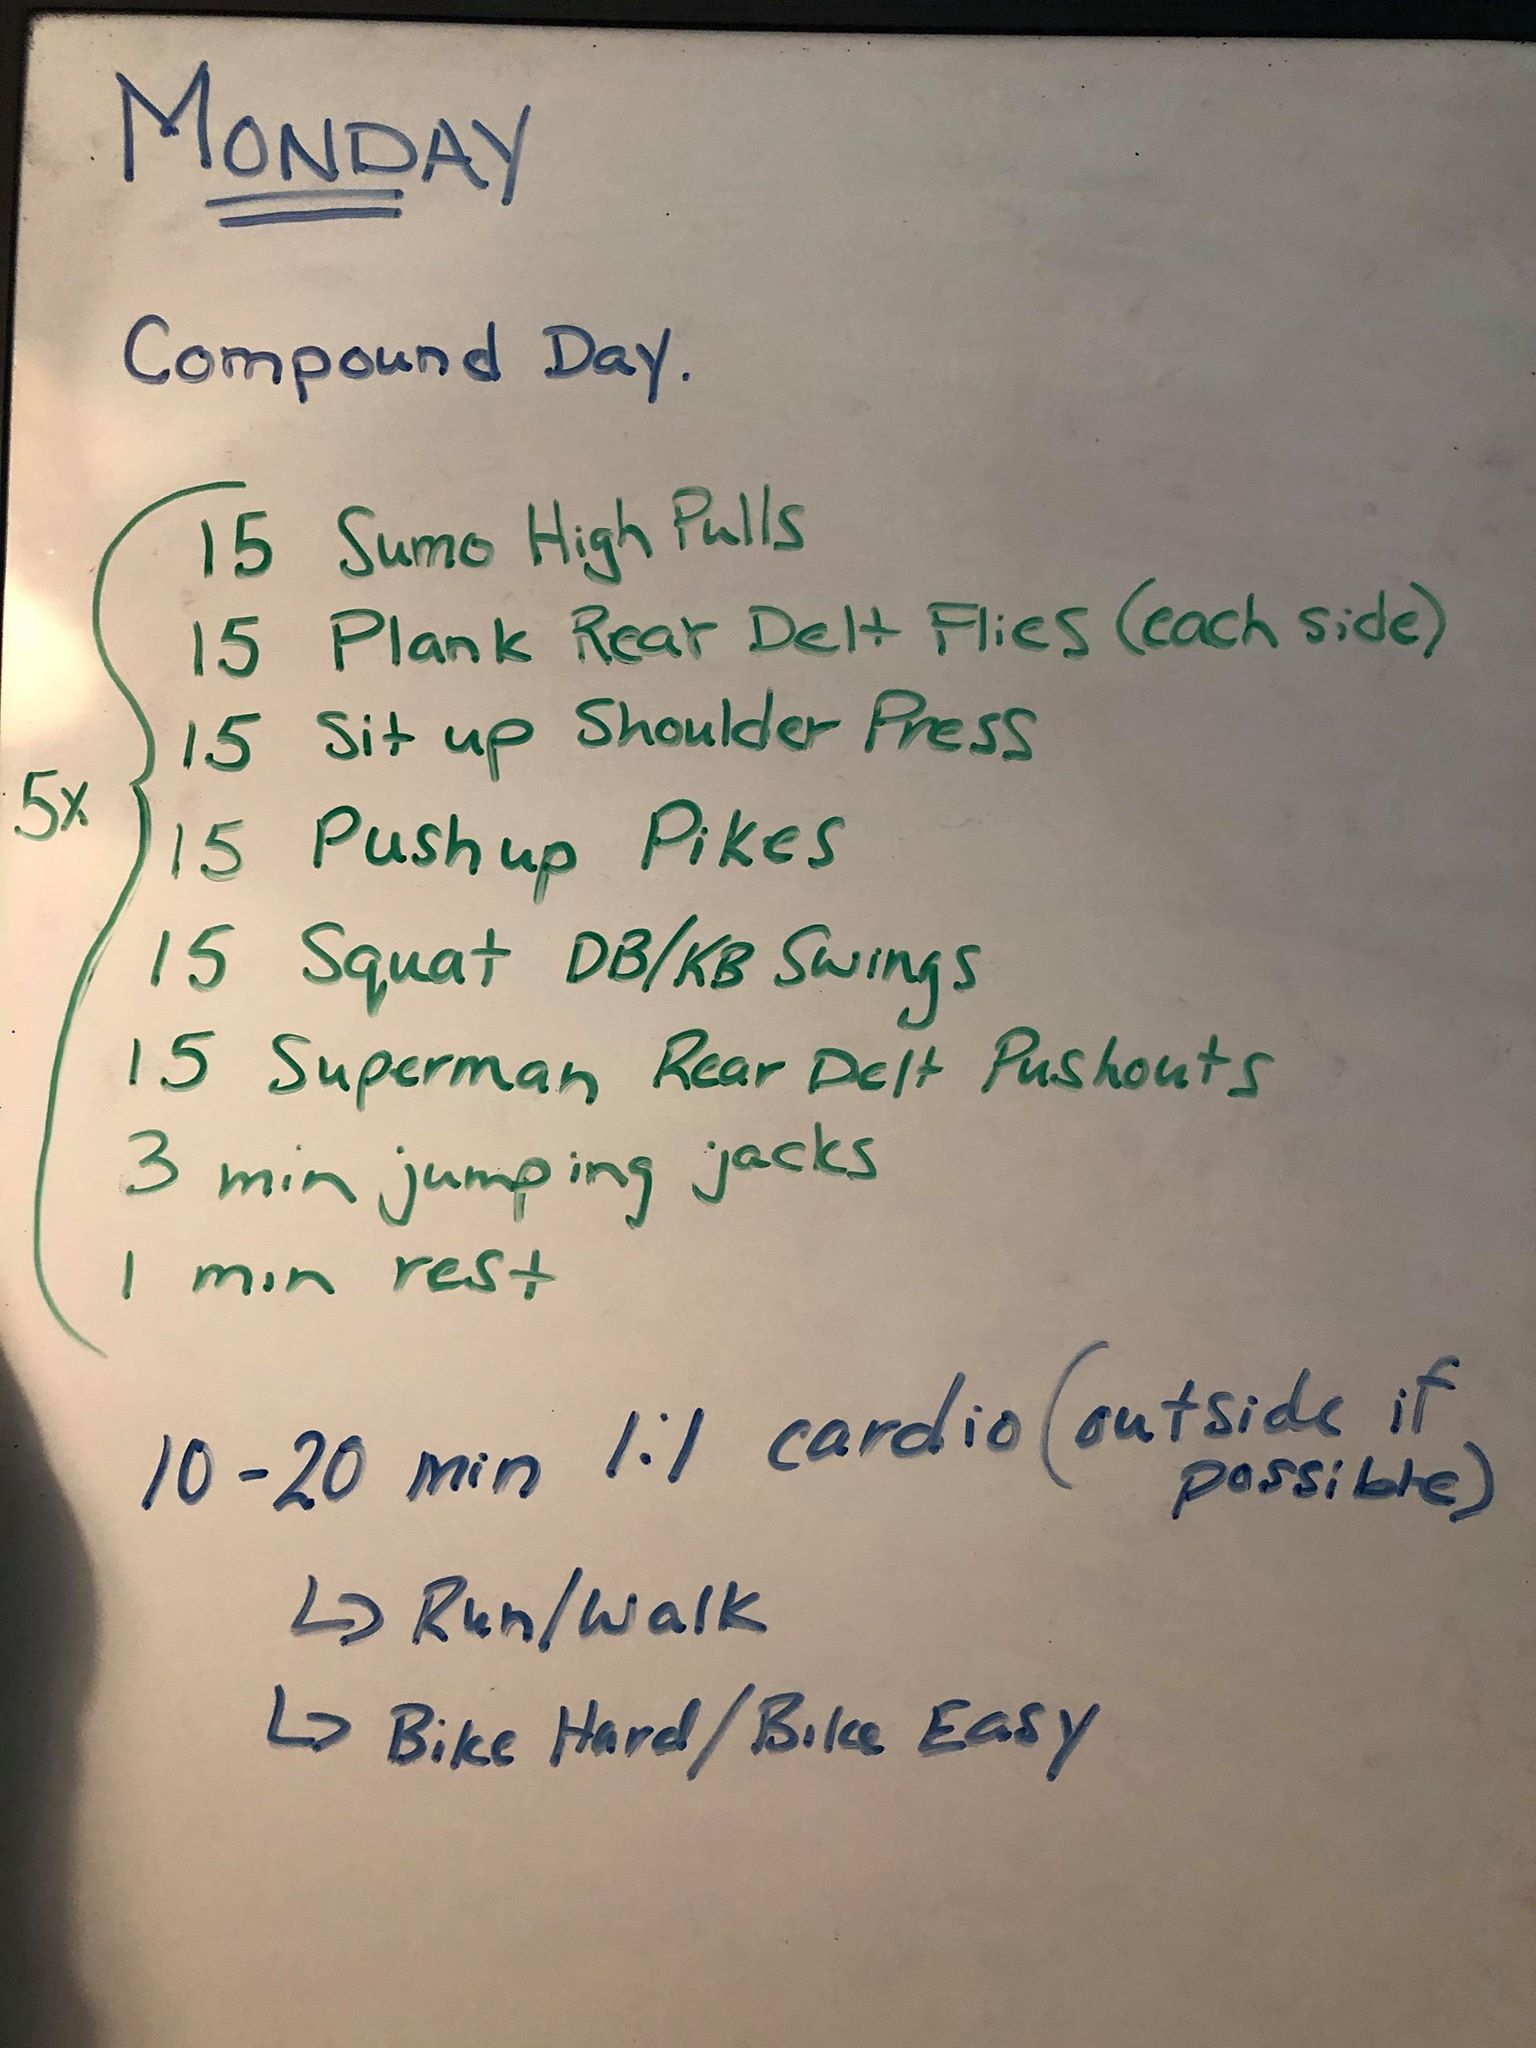 MONDAY
Compound Day.
15 Sumo High Pulls
15 Plank Rear Delt Flies (each side)
15 Sit up Shoulder Press
5x
15 Pushup Pikes
15 Squat DB/KB Swings
15 Superman Rear Delt Pushouts
3 min jumping jacks
1 min rest
10-20 min 1:1 cardio (outside if
possible)
↳ Run/Walk
↳ Bike Hard/Bike Easy